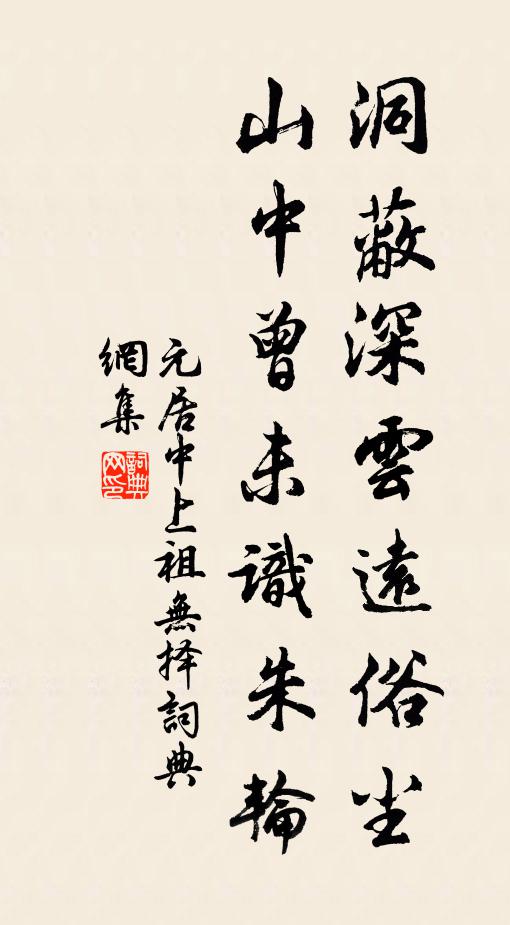 洞蔽深雲遠俗尘
山中曾未識朱輪
元居中上祖無择詞典
網集
詞典网印